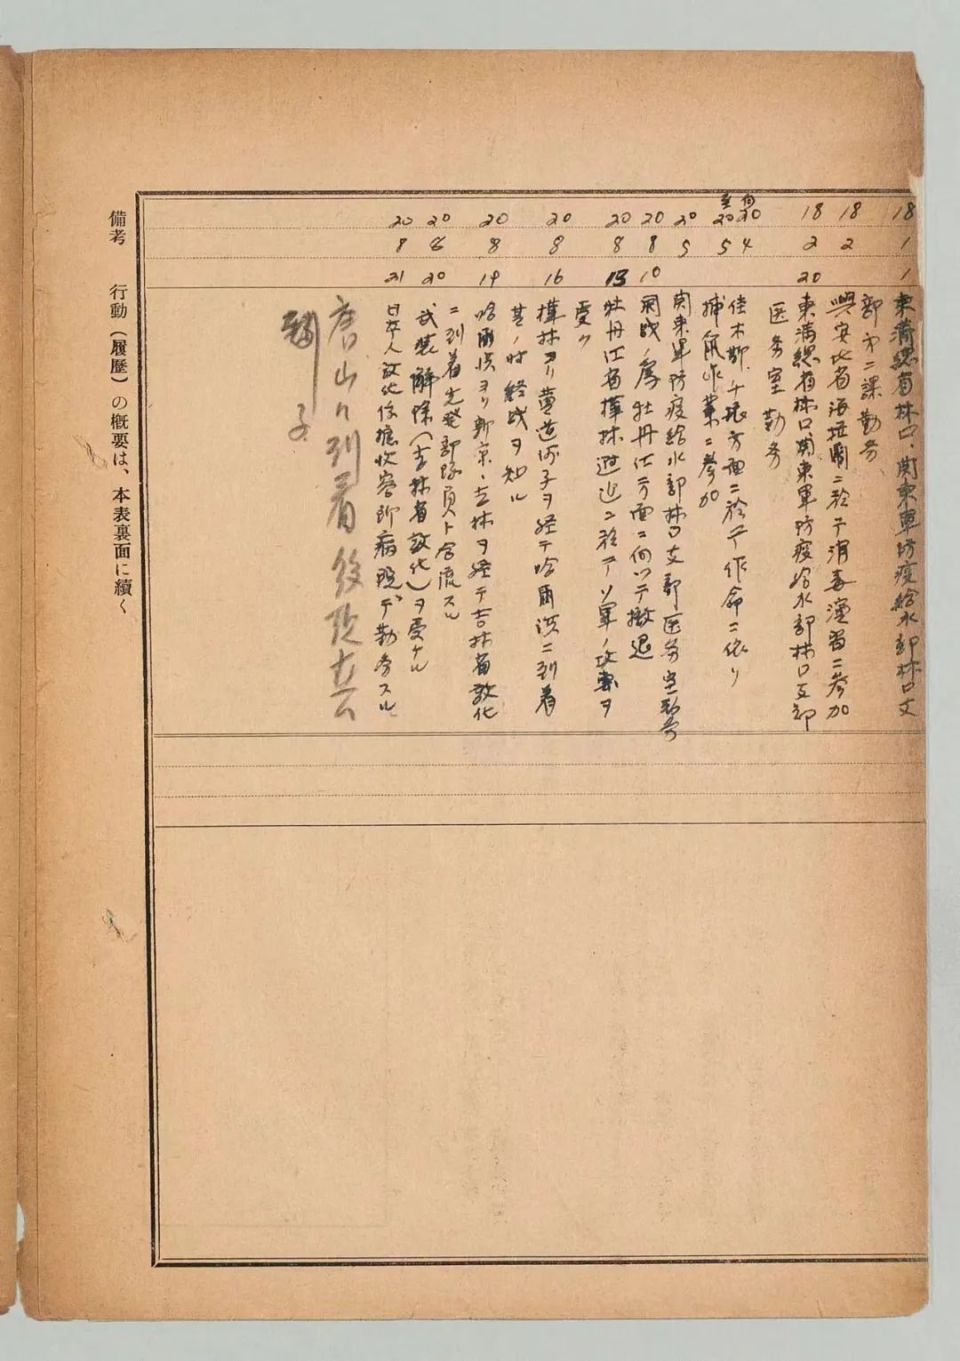 18 1 1 東満総省林口、関東軍防疫給水部林口支
部第二課勤務
18 2 興安北省海拉爾ニ於テ消毒演習ニ参加
18 2 20 東満総省林口関東軍防疫給水部林口支部
医務室勤務
自20 4 至20 5 佳木斯、千振方面ニ於テ作命ニ依リ
捕鼠作業ニ参加
20 5 関東軍防疫給水部林口支部医務室勤務
20 8 10 開戦ノ為牡丹江方面ニ向ツテ撤退
20 8 13 牡丹江省樺林附近ニ於テソ軍ノ攻撃ヲ
受ク
20 8 16 樺林ヨリ葦道河子ヲ経テ哈爾浜ニ到着
其ノ時終戦ヲ知ル
20 8 19 哈爾浜ヨリ新京、吉林ヲ経テ吉林省敦化
ニ到着先発部隊員ト合流スル
20 8 20 武装解除(吉林省敦化)ヲ受ケル
20 8 21 日本人敦化收容所病院デ勤務スル
唐山ニ到着後
備考 行動(履歴)の概要は、本表裏面に続く